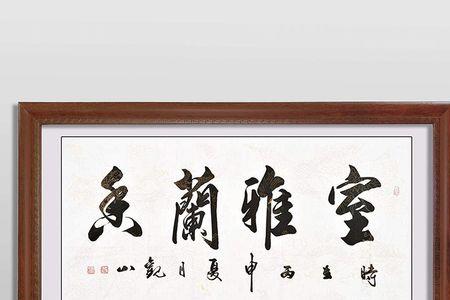 室雅蘭香
時在丙申夏月觀山